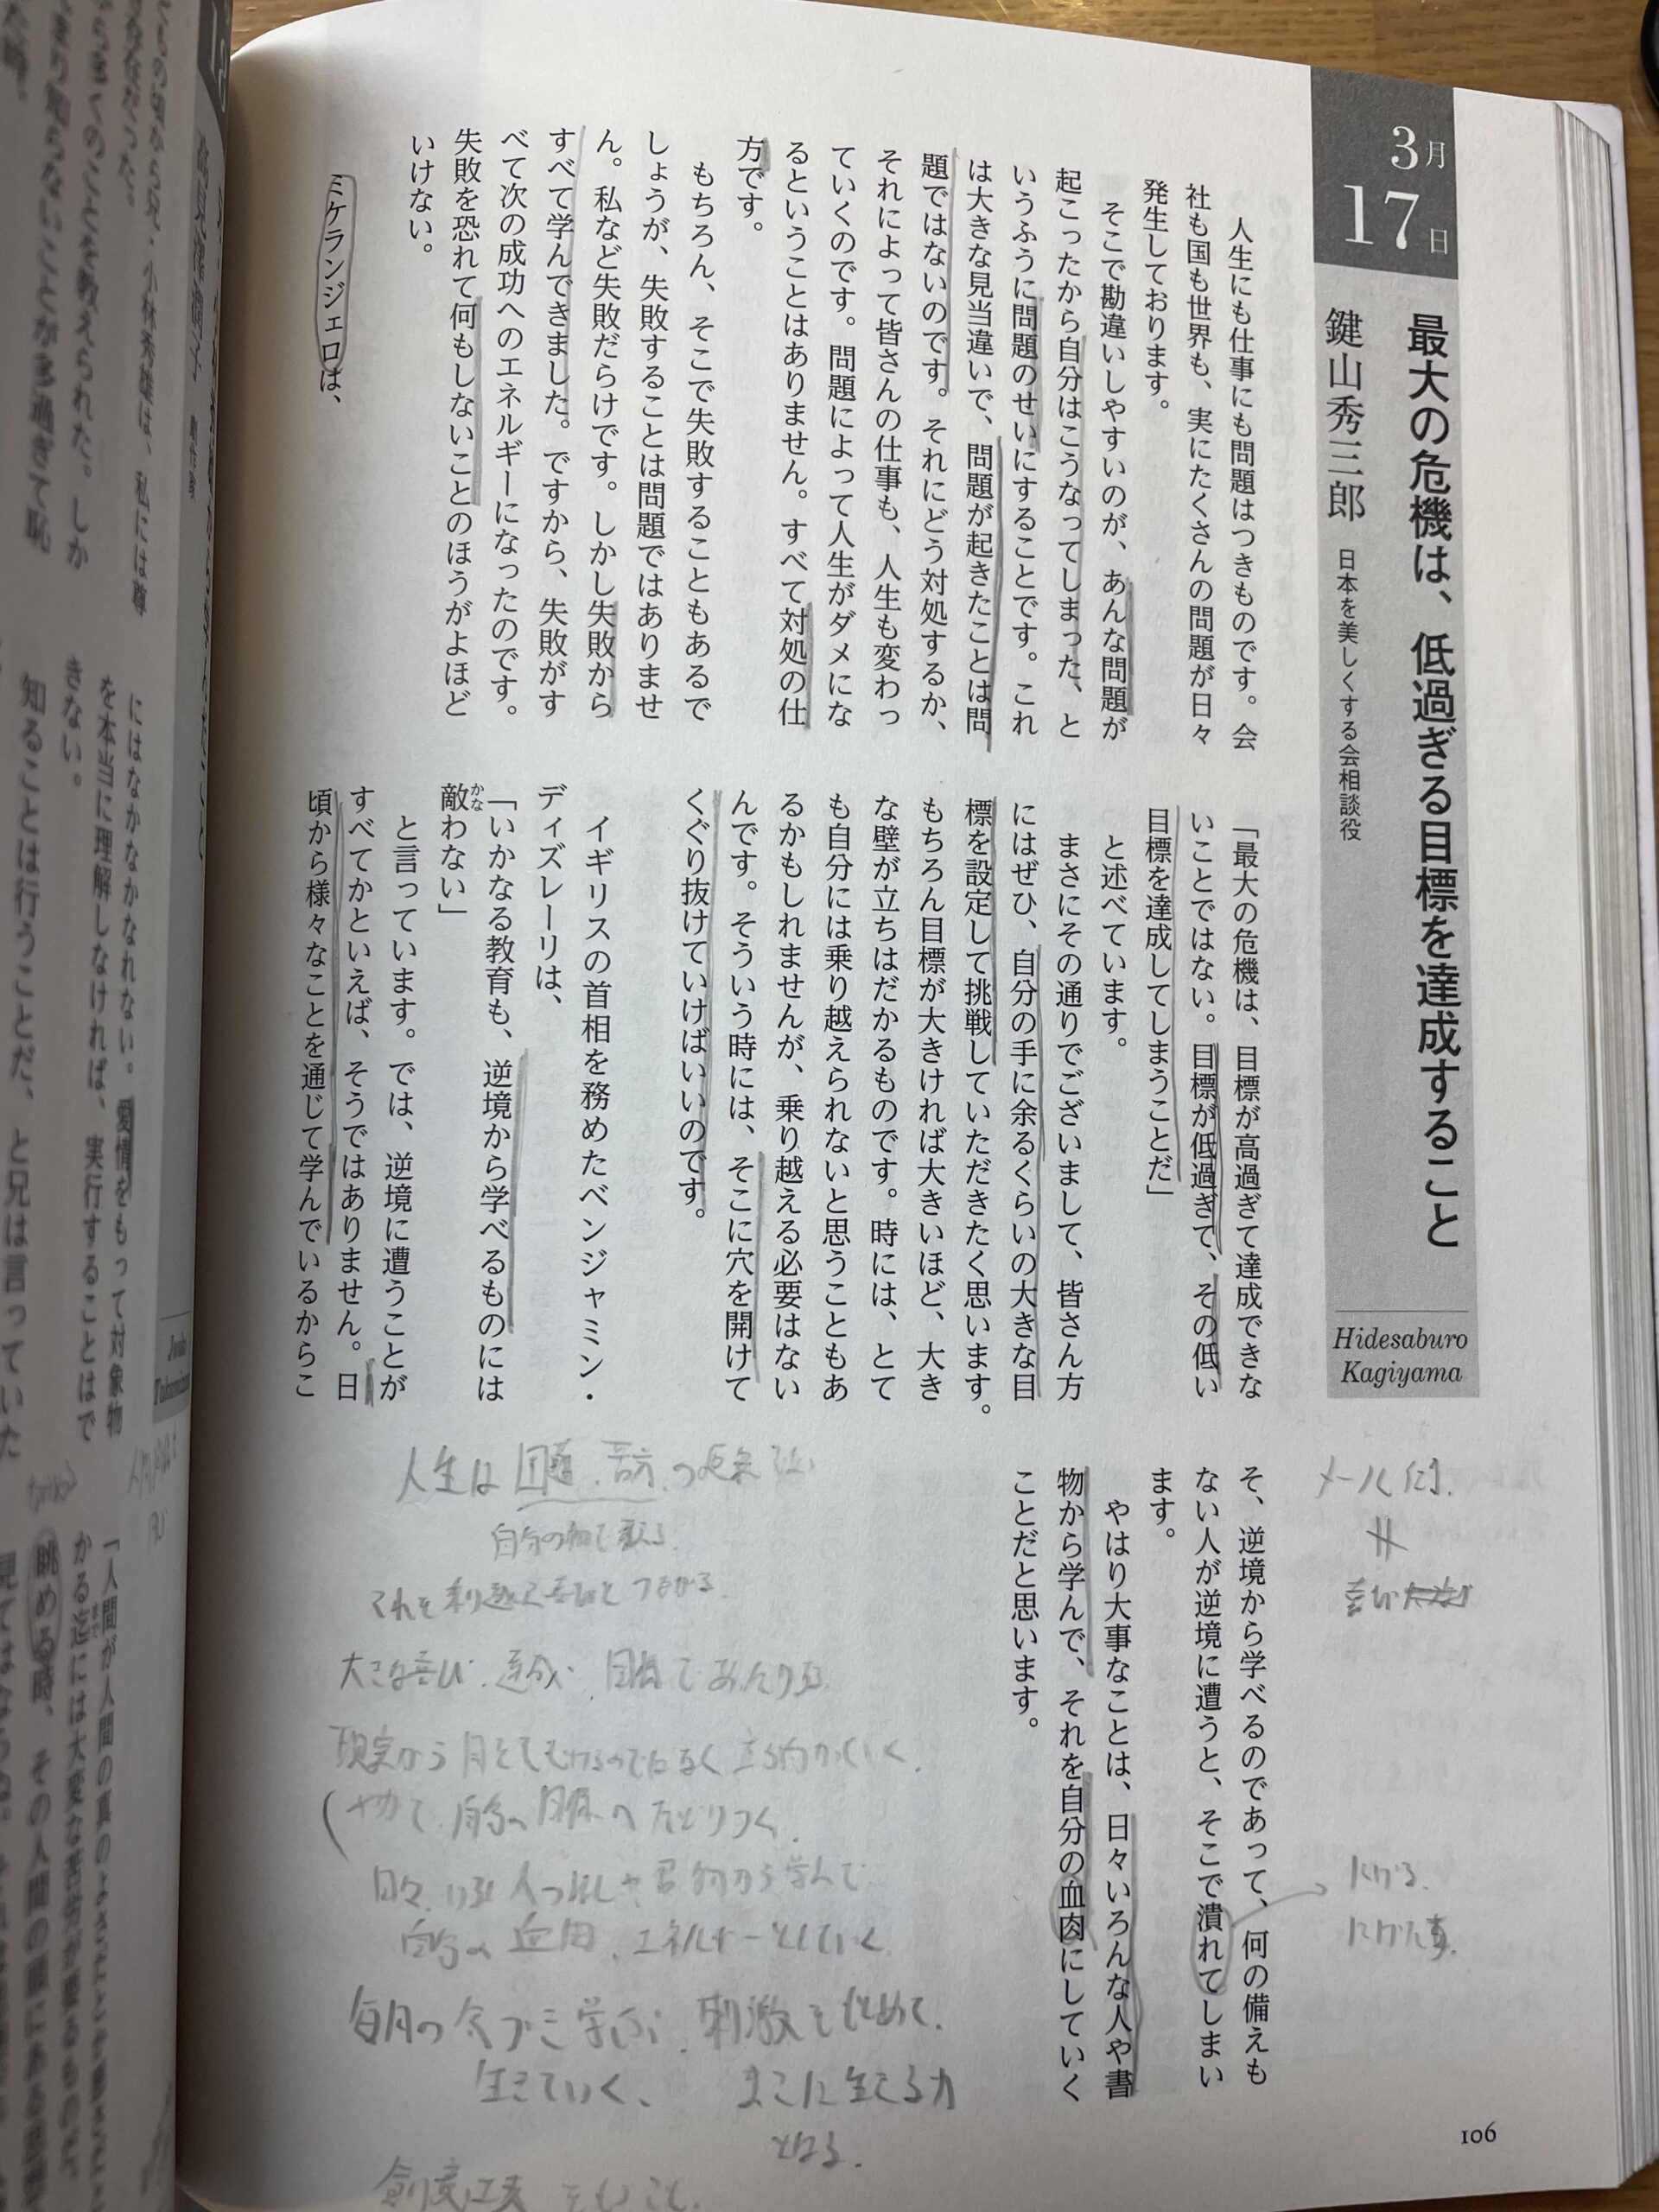 3月
17日
最大の危機は、低過ぎる目標を達成すること
鍵山秀三郎
日本を美しくする会相談役
Hidesaburo
Kagiyama
人生にも仕事にも問題はつきものです。会
社も国も世界も、実にたくさんの問題が日々
発生しております。
そこで勘違いしやすいのが、あんな問題が
起こったから自分はこうなってしまった、と
いうふうに問題のせいにすることです。これ
は大きな見当違いで、問題が起きたことは問
題ではないのです。それにどう対処するか、
それによって皆さんの仕事も、人生も変わっ
ていくのです。問題によって人生がダメにな
るということはありません。すべて対処の仕
方です。
もちろん、そこで失敗することもあるで
しょうが、失敗することは問題ではありませ
ん。私など失敗だらけです。しかし失敗から
すべて学んできました。ですから、失敗がす
べて次の成功へのエネルギーになったのです。
失敗を恐れて何もしないことのほうがよほど
いけない。
ミケランジェロは、
「最大の危機は、目標が高過ぎて達成できな
いことではない。目標が低過ぎて、その低い
目標を達成してしまうことだ」
と述べています。
まさにその通りでございまして、皆さん方
にはぜひ、自分の手に余るくらいの大きな目
標を設定して挑戦していただきたく思います。
もちろん目標が大きければ大きいほど、大き
な壁が立ちはだかるものです。時には、とて
も自分には乗り越えられないと思うこともあ
るかもしれませんが、乗り越える必要はない
んです。そういう時には、そこに穴を開けて
くぐり抜けていけばいいのです。
イギリスの首相を務めたベンジャミン・
ディズレーリは、
「いかなる教育も、逆境から学べるものには
敵わない」
かな
と言っています。では、逆境に遭うことが
すべてかといえば、そうではありません。日
頃から様々なことを通じて学んでいるからこ
そ、逆境から学べるのであって、何の備えも
ない人が逆境に遭うと、そこで潰れてしまい
ます。
やはり大事なことは、日々いろんな人や書
物から学んで、それを自分の血肉にしていく
ことだと思います。
106
人生は
大きな喜び
現実から
立ち向かっていく
自分の
たどりつく
日々
自分の血肉、エネルギーとしていく
毎月の
学び、刺激を
生きていく、
生きる力
となる。
創意工夫
メール
にげる
小林秀雄は、私には尊
にはなかなかなれない。愛情をもって対象物
を本当に理解しなければ、実行することはで
きない。
知ることは行うことだ、と兄は言っていた
「人間が人間の真のよさだとか悪さだとか
かる迄には大変な苦労が要るものだ。
眺める時、その人間の頭にある